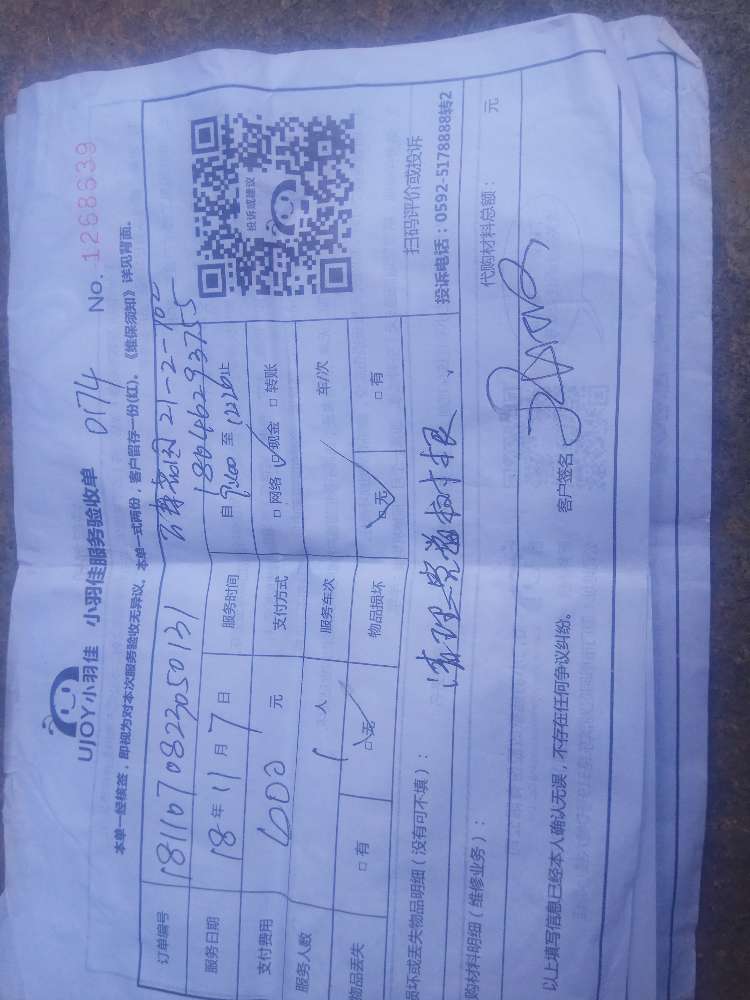 UJOY小羽佳 小羽佳服务验收单 0174 No. 1268639
本单一经核签，即视为对本次服务验收无异议，本单一式两份，客户留存一份(红)。《维保须知》详见背面。
订单编号 18110708223050131 21-2-
18046293755
服务日期 18年11月7日 服务时间 自 至 止
支付费用 600 元 支付方式 □网络 □现金 □转账
服务人数 1 人 服务车次 车/次
物品丢失 □有 □无 物品损坏 □无 □有
投诉或建议
扫码评价或投诉
投诉电话：0592-5178888转2
损坏或丢失物品明细（没有可不填）： 清理 树根
购材料明细（维修业务）： 代购材料总额： 元
以上填写信息已经本人确认无误，不存在任何争议纠纷。 客户签名